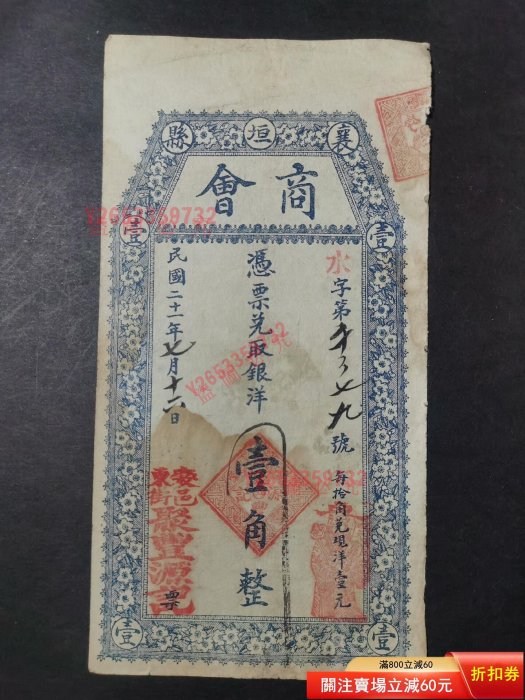 襄垣縣
商會
壹
壹
水字第 七九號
每拾角兌現洋壹元
憑票兌取銀洋
壹角整
民國二十一年七月十六日
東街
聚豐源記
票
壹
壹
Y2653359732
Y2653359732
Y2653359732
滿800立減60
關注賣場立減60元
折扣券